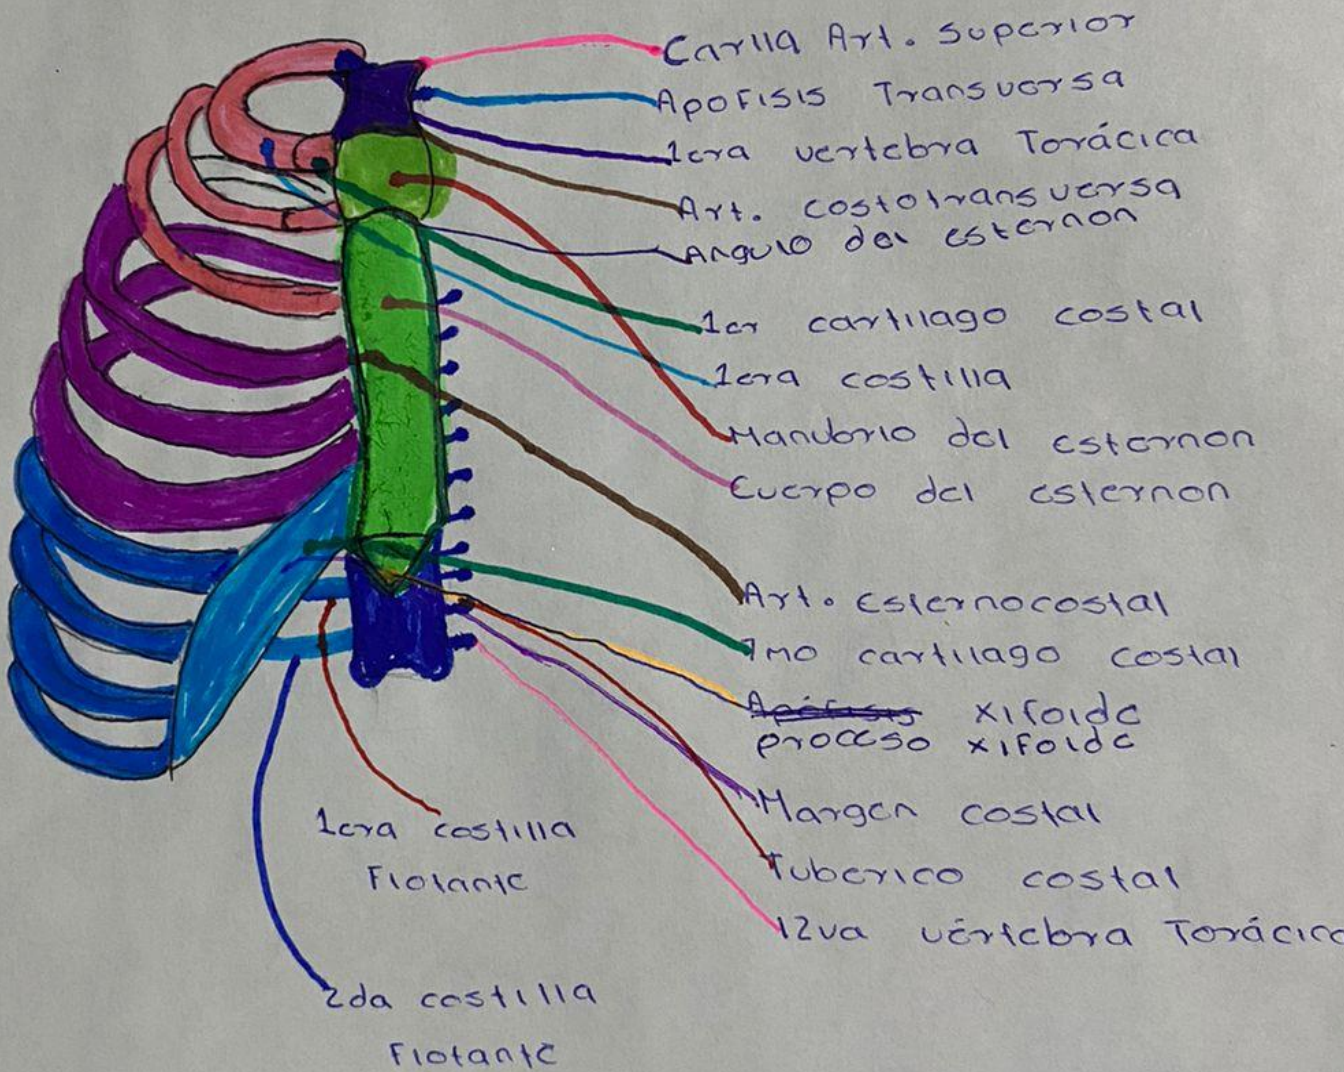 Carlla Art. Superior
Apofisis Transversa
1era vertebra Torácica
Art. costotransversa
Angulo del esternon
1er cartilago costal
1era costilla
Manubrio del esternon
Cuerpo del esternon
Art. Esternocostal
7mo cartilago costal
Apófisis xifoide
proceso xifoide
Margen costal
Tuberico costal
12va vértebra Torácica
1era costilla
Flotante
2da costilla
Flotante